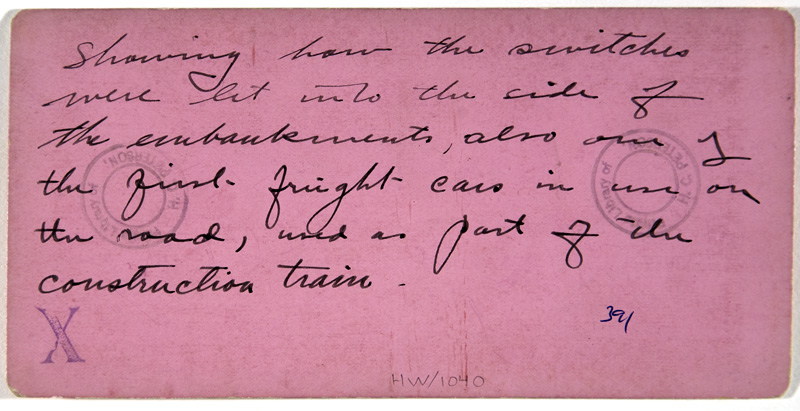 Showing how the switches
were let into the side of
the embankments, also one of
the first freight cars in use on
the road, used as part of the
construction train.
X
391
HW/1040
H. C. PETERSON
Library of